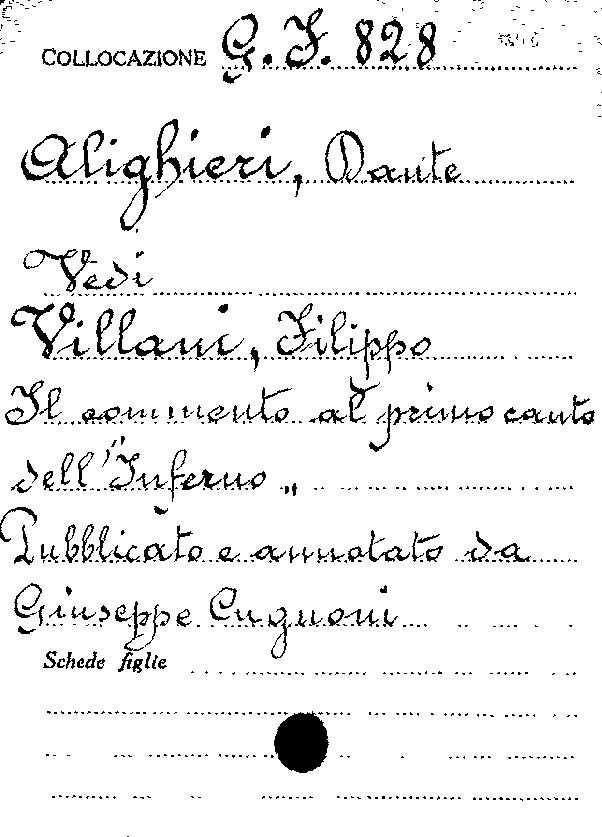 COLLOCAZIONE G. F. 828
Alighieri, Dante
Vedi
Villani, Filippo
Il commento al primo canto
dell'"Inferno„
Pubblicato e annotato da
Giuseppe Cugnoni
Schede figlie